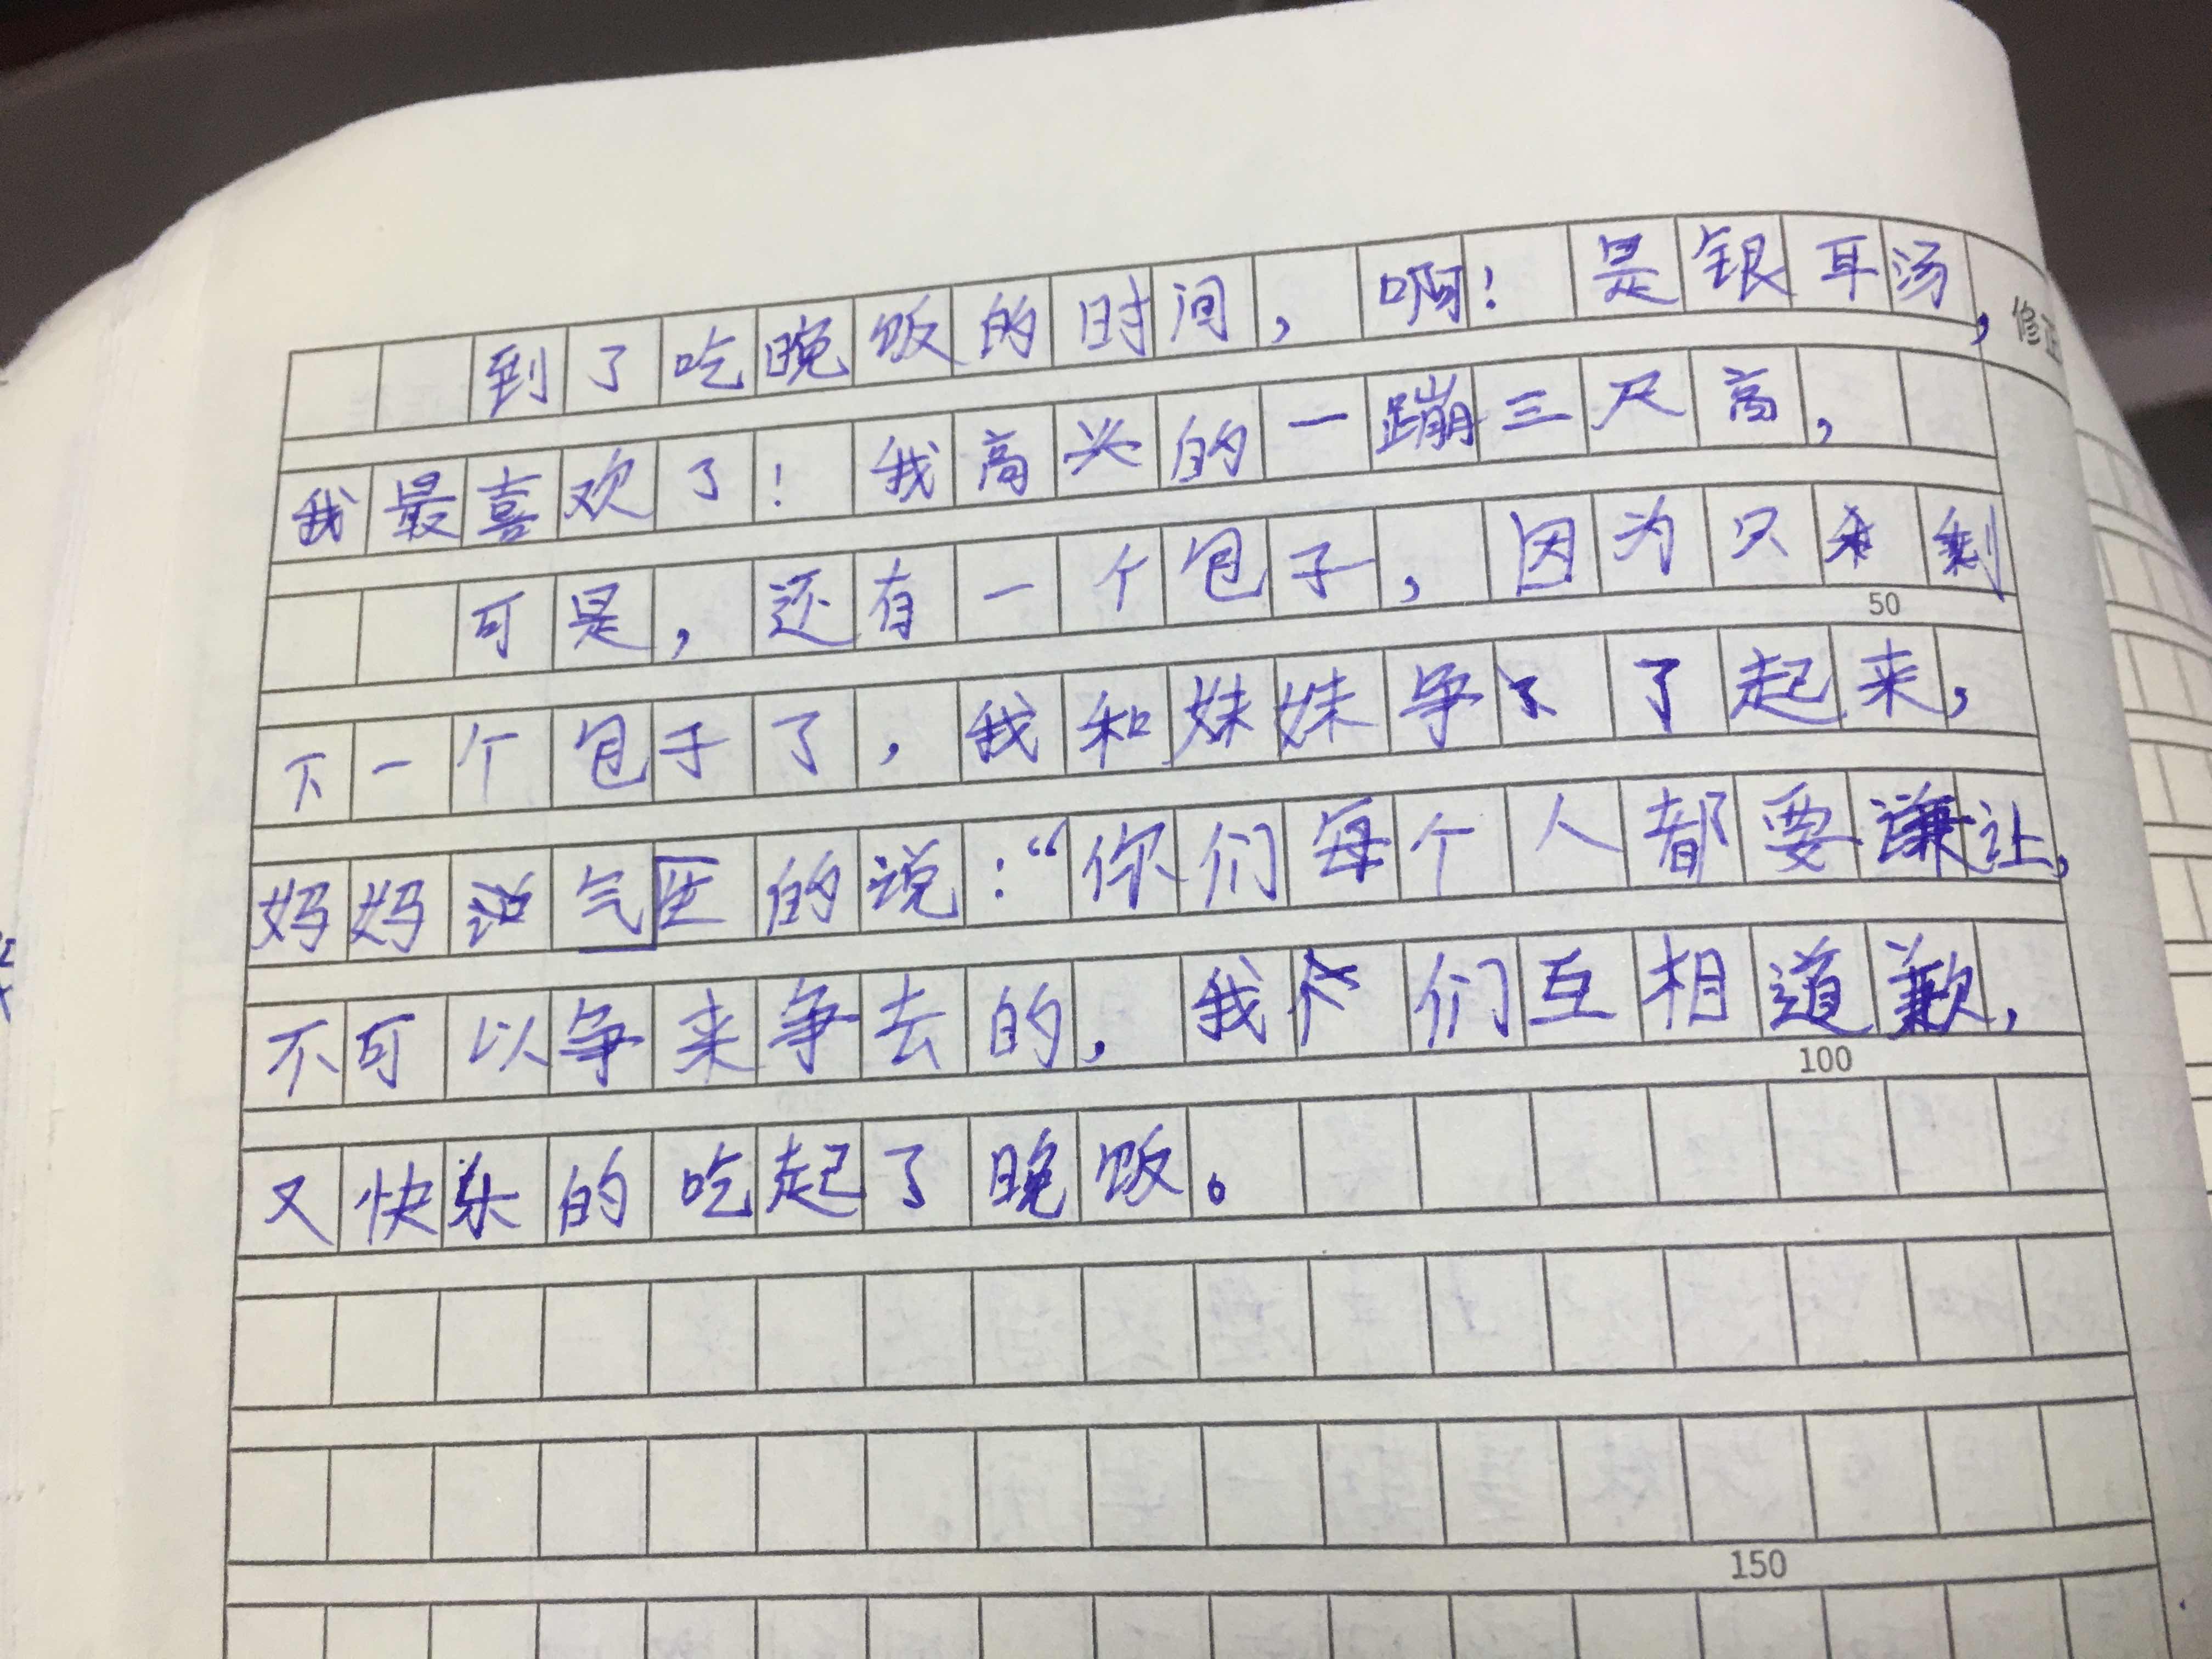 到了吃晚饭的时间，啊！是银耳汤，
修正
我最喜欢了！我高兴的一蹦三尺高，
可是，还有一个包子，因为只剩
50
下一个包子了，我和妹妹争了起来，
妈妈气的说：“你们每个人都要谦让，
不可以争来争去的，我们互相道歉，
100
又快乐的吃起了晚饭。
150